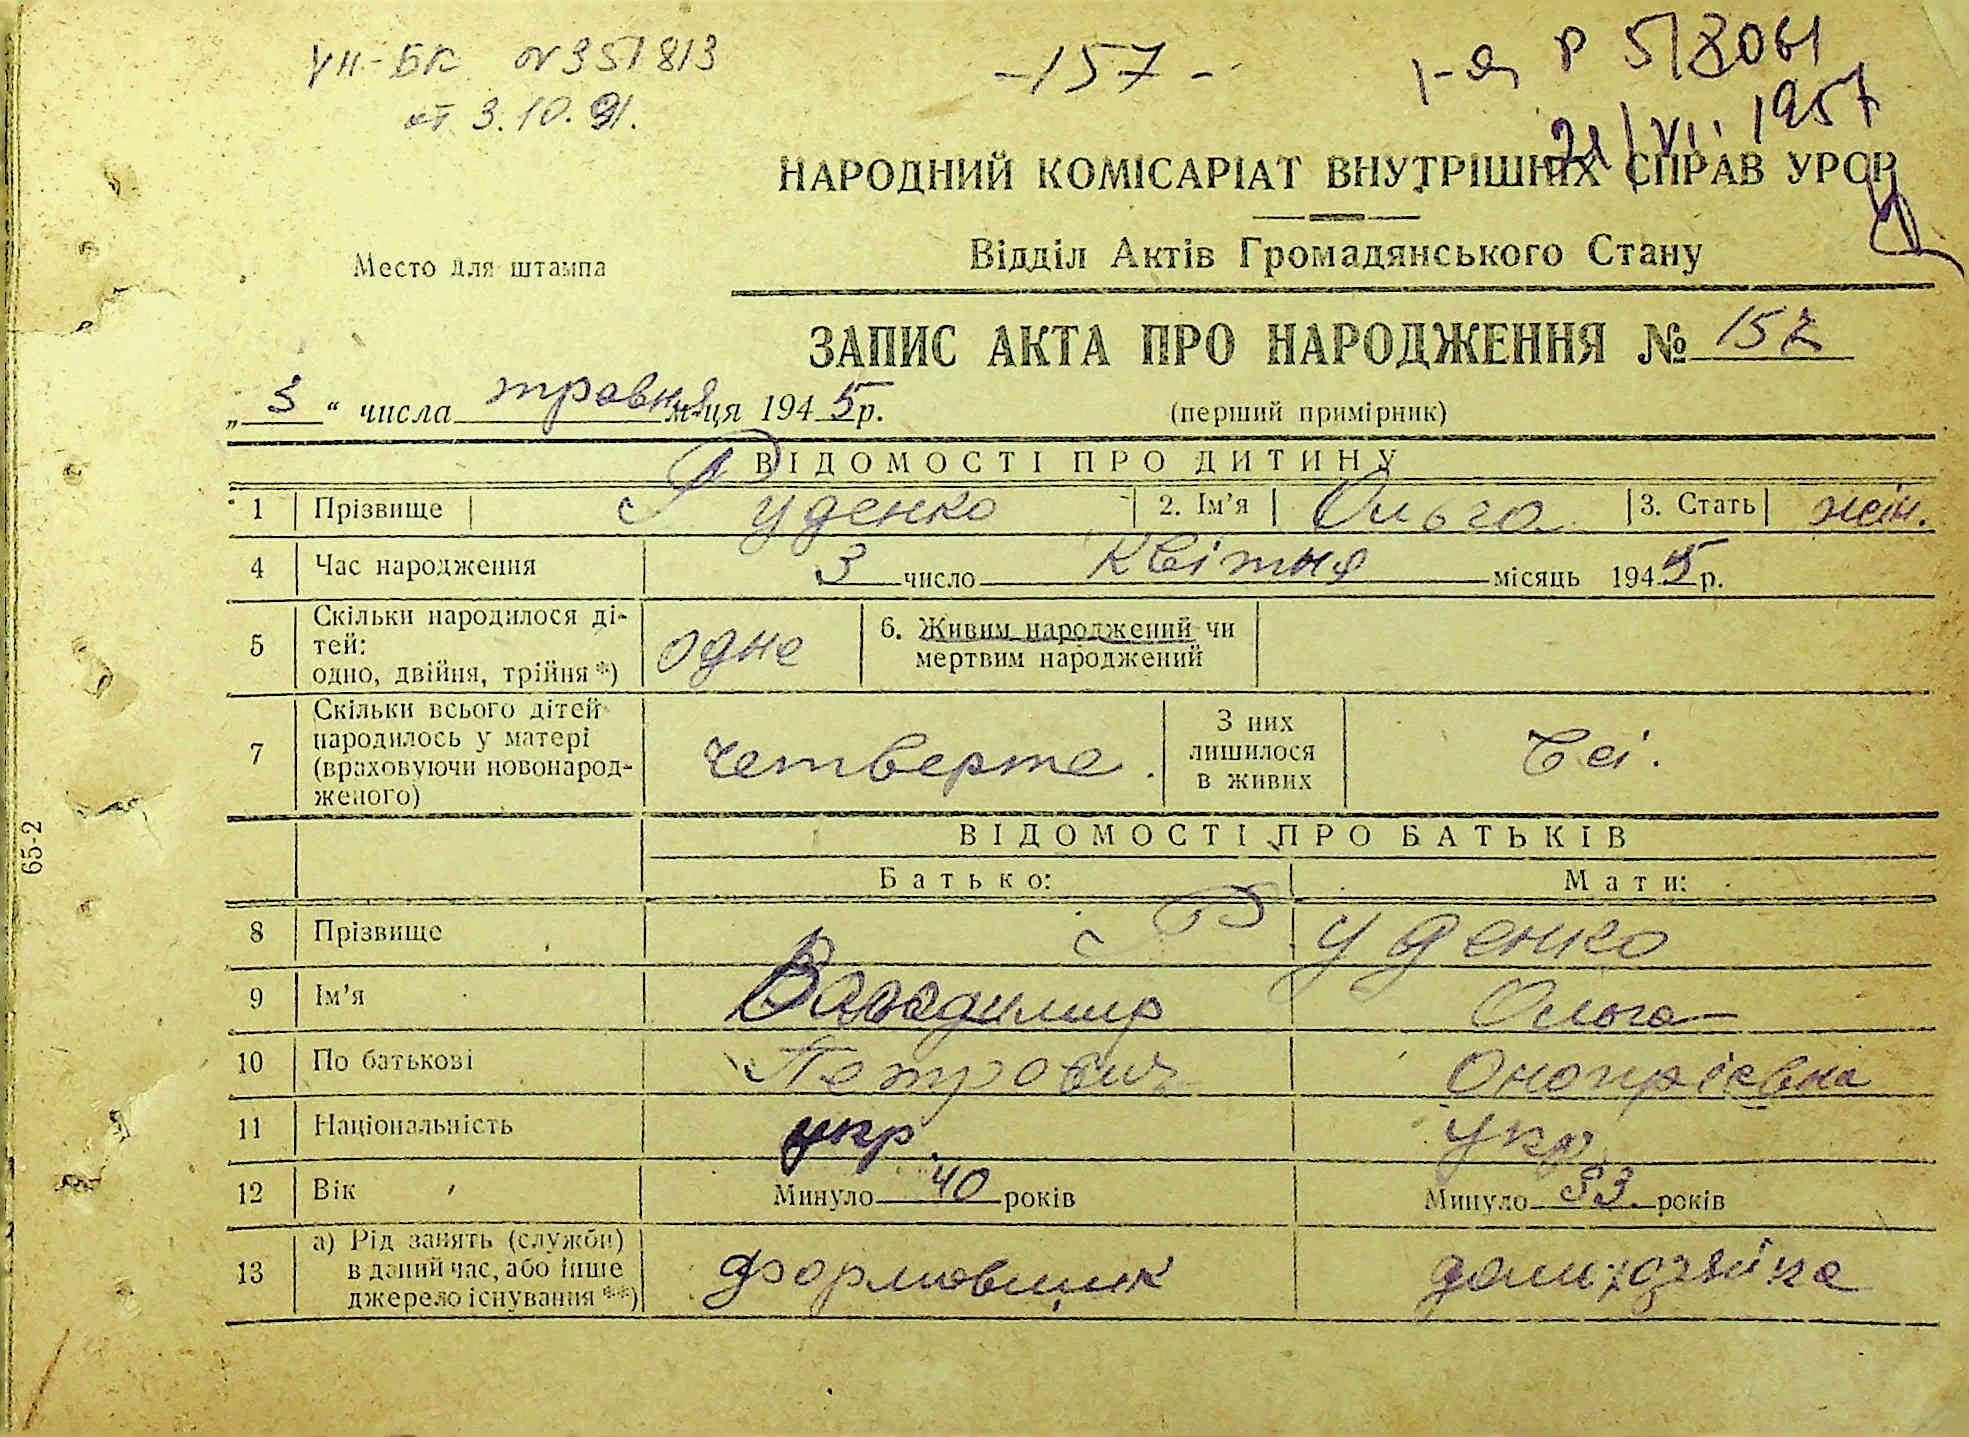 УН-БК № 351813
от 3.10.91.
-157-
І-БЯ Р 518061
21/VI. 1957
НАРОДНИЙ КОМІСАРІАТ ВНУТРІШНІХ СПРАВ УРСР
Відділ Актів Громадянського Стану
Место для штампа
ЗАПИС АКТА ПРО НАРОДЖЕННЯ № 157
„ 3 “ числа травня м-ця 1945 р.
(перший примірник)
ВІДОМОСТІ ПРО ДИТИНУ
1 Прізвище Руденко 2. Ім’я Ольга 3. Стать жін.
4 Час народження 3 число Квітня місяць 1945 р.
5 Скільки народилося ді-
тей:
одно, двійня, трійня *) одне 6. Живим народжений чи
мертвим народжений
7 Скільки всього дітей
народилось у матері
(враховуючи новонарод-
женого) четверте. З них
лишилося
в живих Всі.
ВІДОМОСТІ ПРО БАТЬКІВ
Батько: Мати:
8 Прізвище Руденко
9 Ім’я Володимир Ольга
10 По батькові Петрович Оноприєвна
11 Національність укр. укр.
12 Вік Минуло 40 років Минуло 33 років
13 а) Рід занять (служби)
в даний час, або інше
джерело існування **) формовщик домохозяйка
65-2